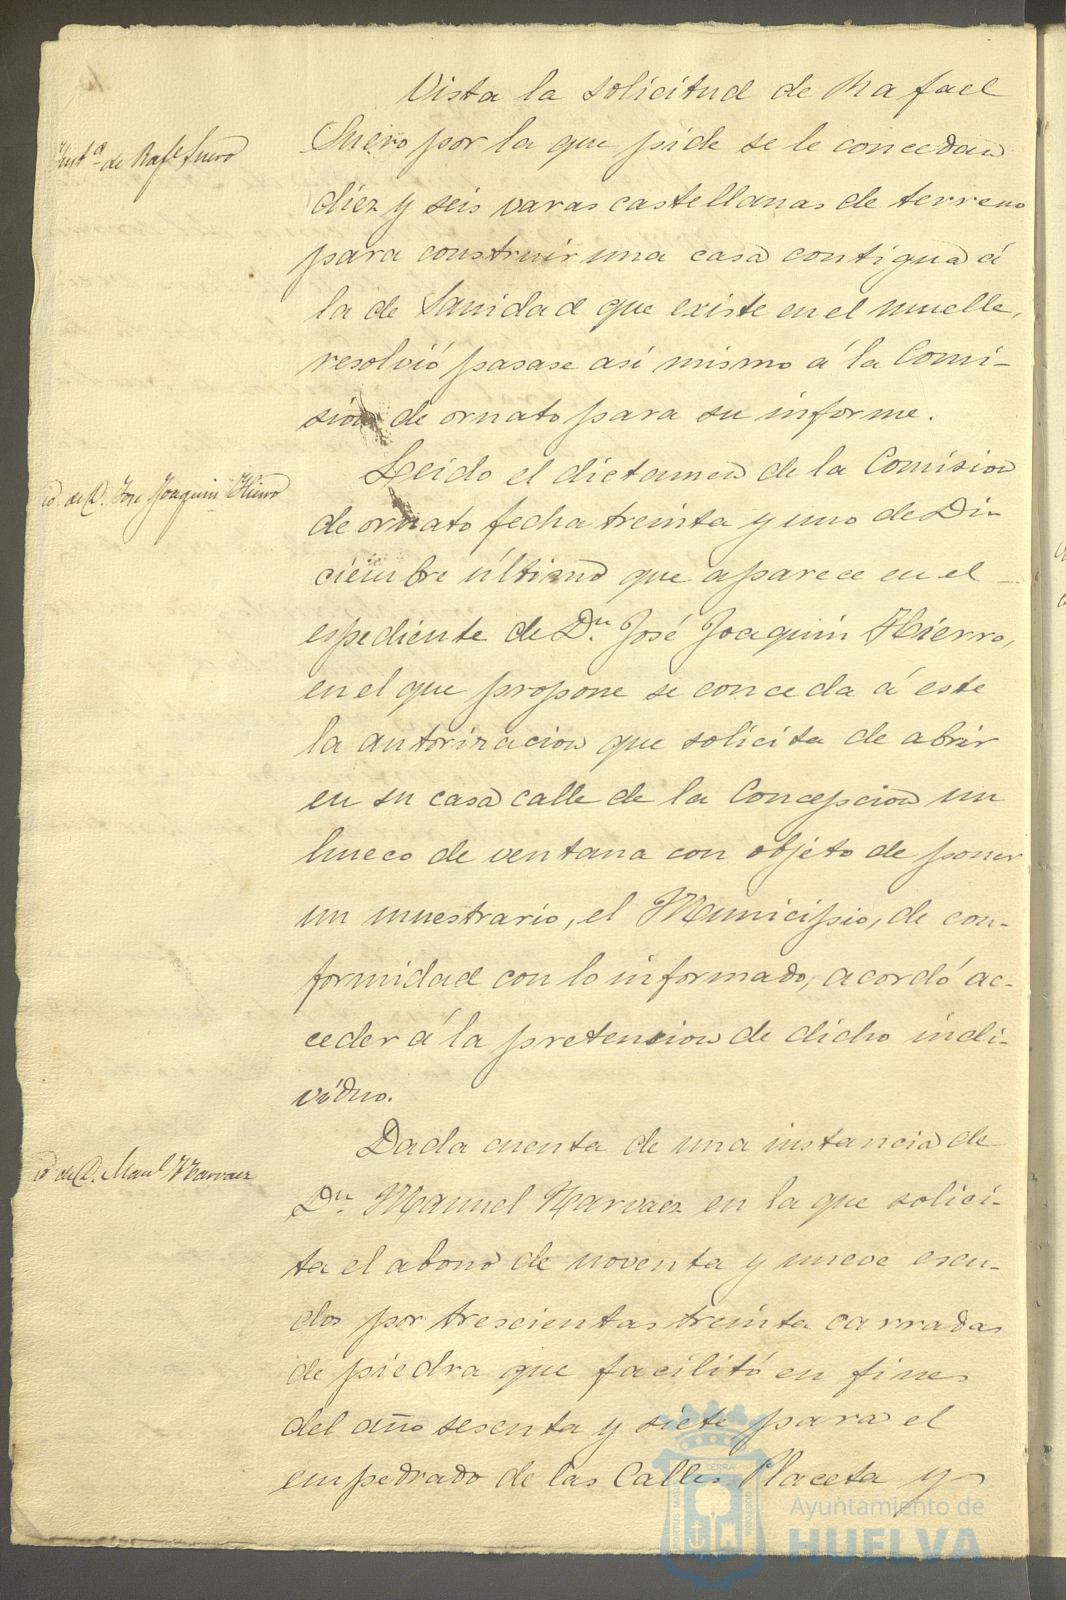 Vista la solicitud de Rafael
Suero por la que pide se le concedan
diez y seis varas castellanas de terreno
para construir una casa contigua á
la de Sanidad que existe en el muelle,
resolvió pasase asi mismo á la Comi-
sion de ornato para su informe.
Leido el dictamen de la Comision
de ornato fecha treinta y uno de Di-
ciembre último que aparece en el
espediente de Dn. José Joaquin Hierro,
en el que propone se conceda á este
la autorizacion que solicita de abrir
en su casa calle de la Concepcion un
hueco de ventana con objeto de poner
un muestrario, el Municipio, de con-
formidad con lo informado, acordó ac-
ceder á la pretension de dicho indi-
viduo.
Dada cuenta de una instancia de
Dn. Manuel Narvaez en la que solici-
ta el abono de noventa y nueve escu-
dos por trescientas treinta carradas
de piedra que facilitó en fines
del año sesenta y siete para el
empedrado de las Calles Placeta y
Insta. de Rafl. Suero
id. de D. Jose Joaquin Hierro
id de D. Manl Narvaez
Ayuntamiento de
HUELVA